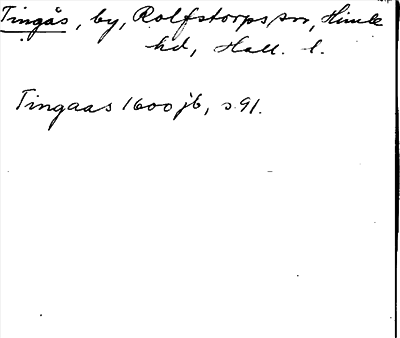 Tingås, by, Rolfstorps sn, Himle
hd, Hall. l.
Tingaas 1600 jb, s. 91.